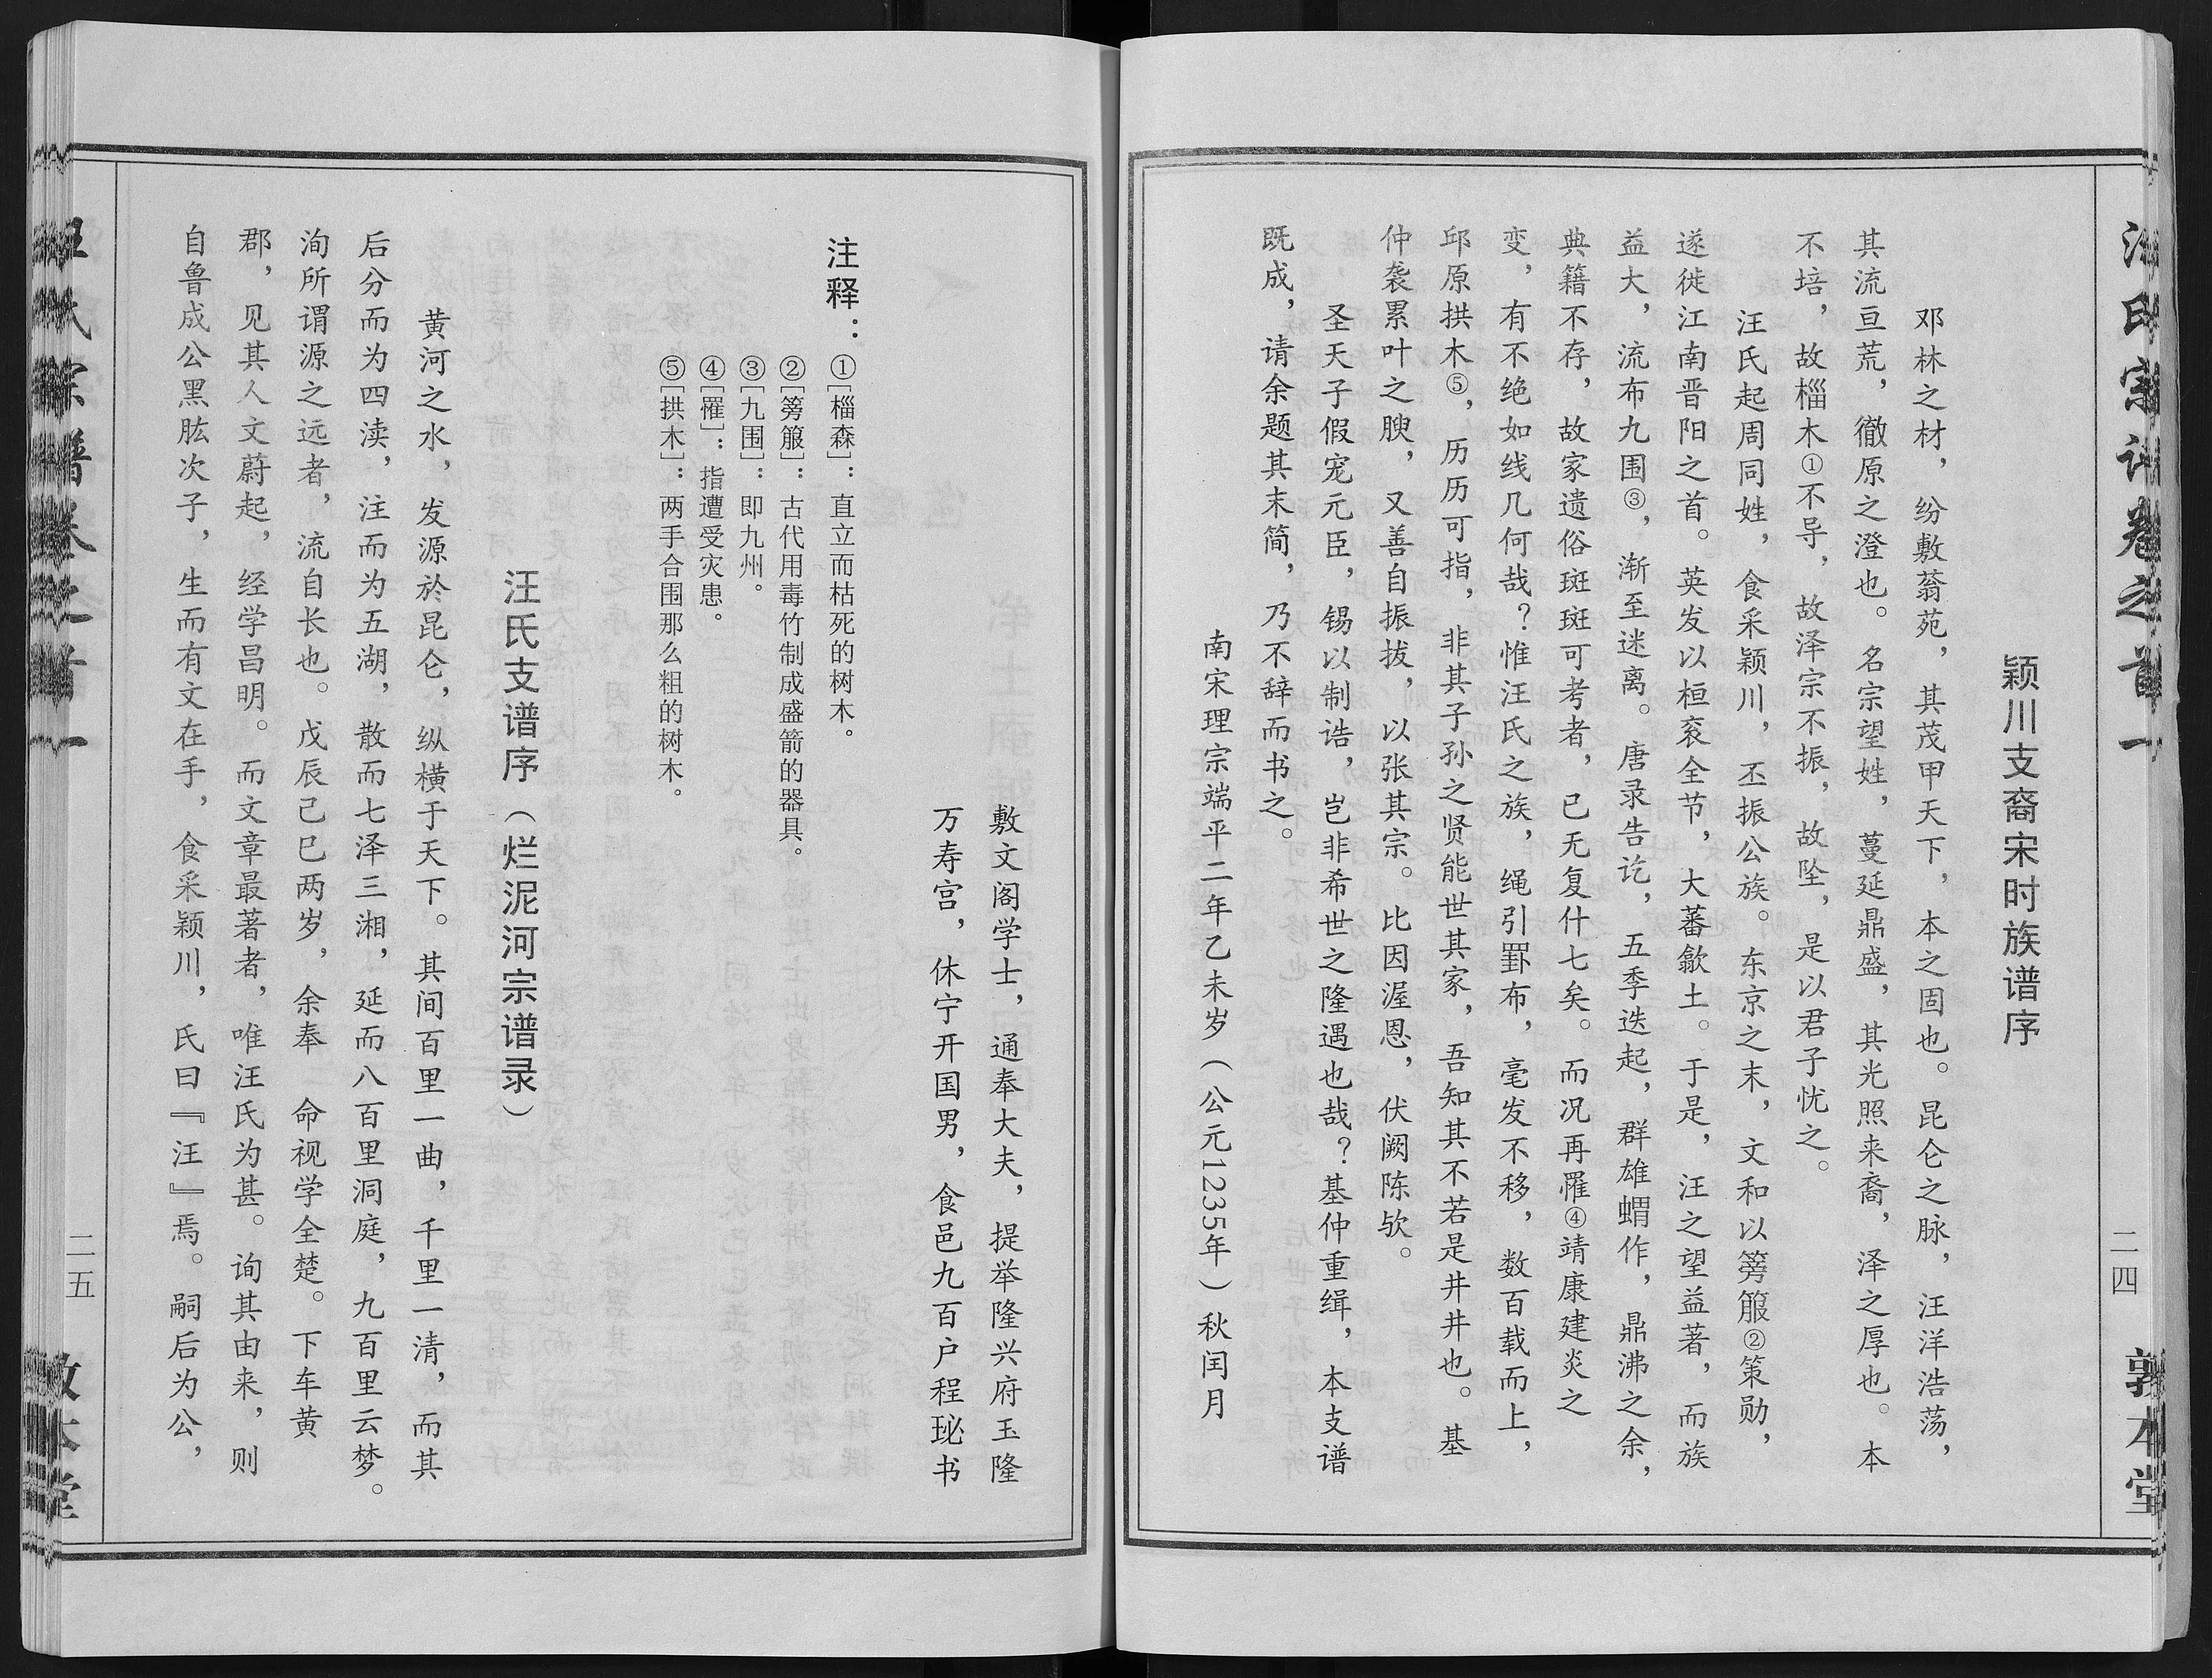 汪氏宗谱卷之首一
二四
敦本堂
颖川支裔宋时族谱序
邓林之材，纷敷蓊苑，其茂甲天下，本之固也。昆仑之脉，汪洋浩荡，
其流亘荒，徹原之澄也。名宗望姓，蔓延鼎盛，其光照来裔，泽之厚也。本
不培，故椔木①不导，故泽宗不振，故坠，是以君子忧之。
汪氏起周同姓，食采颖川，丕振公族。东京之末，文和以簩箙②策勋，
遂徙江南晋阳之首。英发以桓衮全节，大蕃歙土。于是，汪之望益著，而族
益大，流布九围③，渐至迷离。唐录告讫，五季迭起，群雄蝟作，鼎沸之余，
典籍不存，故家遗俗斑斑可考者，已无复什七矣。而况再罹④靖康建炎之
变，有不绝如线几何哉？惟汪氏之族，绳引罫布，毫发不移，数百载而上，
邱原拱木⑤，历历可指，非其子孙之贤能世其家，吾知其不若是井井也。基
仲袭累叶之腴，又善自振拔，以张其宗。比因渥恩，伏阙陈欤。
圣天子假宠元臣，锡以制诰，岂非希世之隆遇也哉？基仲重缉，本支谱
既成，请余题其末简，乃不辞而书之。
南宋理宗端平二年乙未岁（公元1235年）秋闰月
敷文阁学士，通奉大夫，提举隆兴府玉隆
万寿宫，休宁开国男，食邑九百户程珌书
注释：①[椔森]：直立而枯死的树木。
②[簩箙]：古代用毒竹制成盛箭的器具。
③[九围]：即九州。
④[罹]：指遭受灾患。
⑤[拱木]：两手合围那么粗的树木。
汪氏支谱序（烂泥河宗谱录）
黄河之水，发源於昆仑，纵横于天下。其间百里一曲，千里一清，而其
后分而为四渎，注而为五湖，散而七泽三湘，延而八百里洞庭，九百里云梦。
洵所谓源之远者，流自长也。戊辰己巳两岁，余奉 命视学全楚。下车黄
郡，见其人文蔚起，经学昌明。而文章最著者，唯汪氏为甚。询其由来，则
自鲁成公黑肱次子，生而有文在手，食采颖川，氏曰『汪』焉。嗣后为公，
汪氏宗谱卷之首一
二五
敦本堂